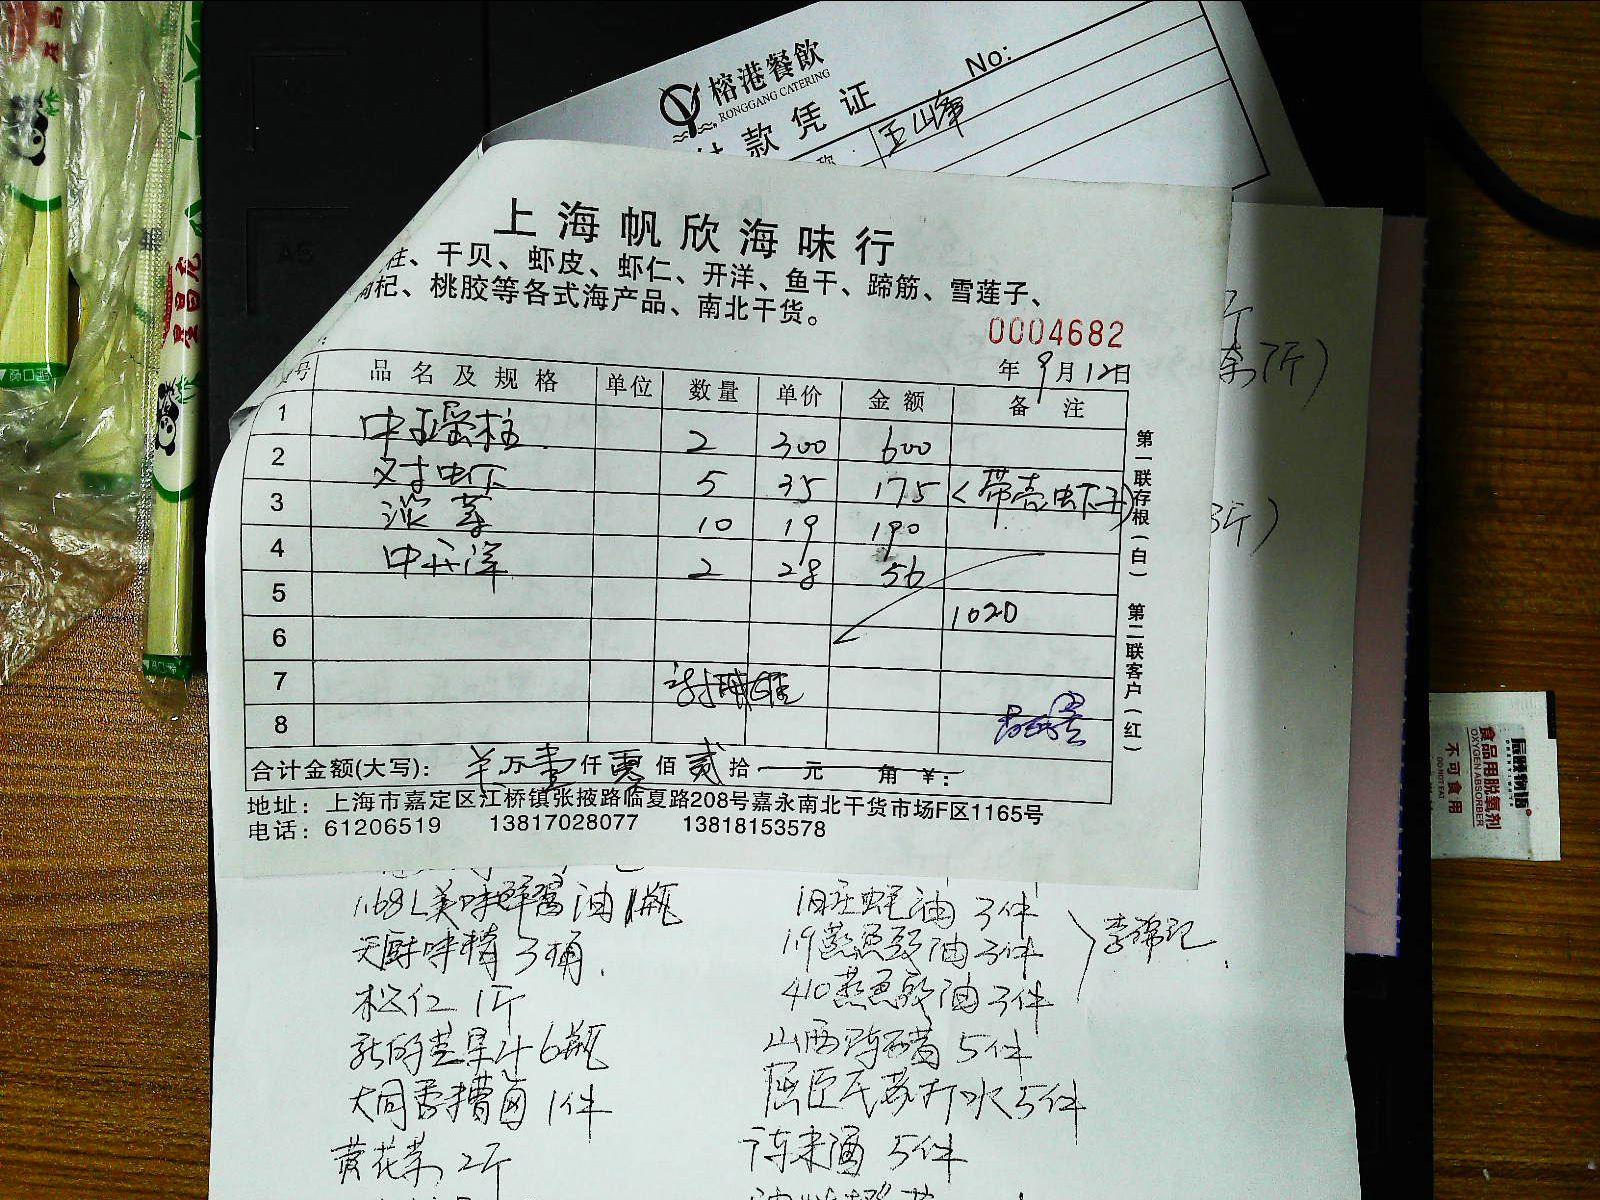 榕港餐飲
RONGGANG CATERING
款凭证
No:
王山峰
上海帆欣海味行
柱、干贝、虾皮、虾仁、开洋、鱼干、蹄筋、雪莲子、
枸杞、桃胶等各式海产品、南北干货。
0004682
年 9月12日
号 品名及规格 单位 数量 单价 金额 备注
1 中瑶柱 2 300 600
2 对虾 5 35 175 (带壳虾子)
3 淡菜 10 19 190
4 中开洋 2 28 56
5 1020
6
7
8
合计金额(大写): 万壹仟零佰贰拾 元 角 ¥:
地址: 上海市嘉定区江桥镇张掖路临夏路208号嘉永南北干货市场F区1165号
电话: 61206519 13817028077 13818153578
第一联存根(白) 第二联客户(红)
1.68L美味鲜酱油 1瓶
天厨味精 3桶
松仁 1斤
新的苹果汁 6瓶
大同香糟卤 1件
黄花菜 2斤
旧庄蚝油 3件
1.9蒸鱼豉油 3件
410蒸鱼豉油 3件
李锦记
山西陈醋 5件
屈臣氏苏打水 5件
5件
7斤)
食品用脱氧剂
OXYGEN ABSORBER
不可食用
DO NOT EAT